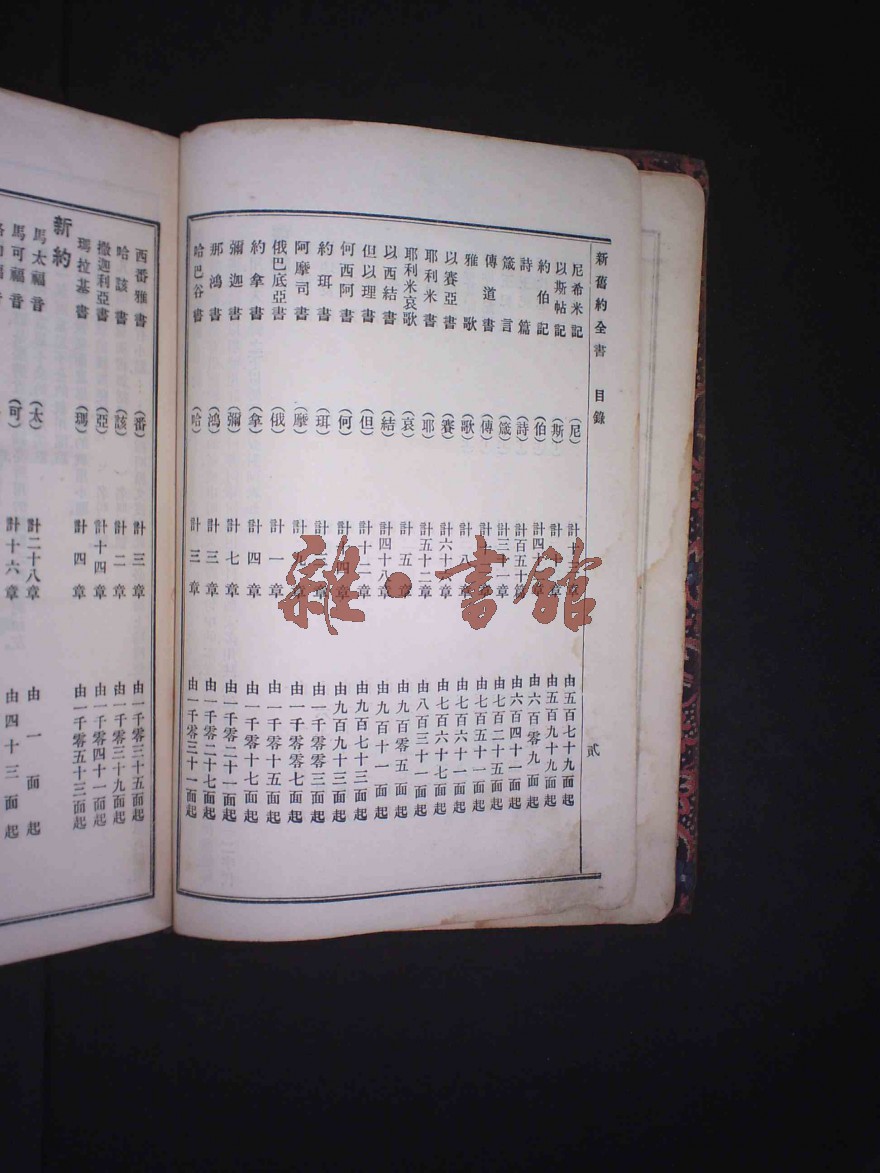 新舊約全書 目錄 貳
尼希米記 （尼） 計十三章 由五百七十九面起
以斯帖記 （斯） 計十章 由五百九十九面起
約伯記 （伯） 計四十 章 由六百零九面起
詩篇 （詩） 計百五十篇 由六百四十一面起
箴言 （箴） 計三十一章 由七百二十五面起
傳道書 （傳） 計十二章 由七百五十一面起
雅歌 （歌） 計八章 由七百六十一面起
以賽亞書 （賽） 計六十 章 由七百六十七面起
耶利米書 （耶） 計五十二章 由八百三十一面起
耶利米哀歌 （哀） 計五章 由九百零五面起
以西結書 （結） 計四十八章 由九百十一面起
但以理書 （但） 計十二章 由九百七十三面起
何西阿書 （何） 計十四章 由九百九十三面起
約珥書 （珥） 計 章 由一千零零三面起
阿摩司書 （摩） 計九章 由一千零零七面起
俄巴底亞書 （俄） 計一章 由一千零十五面起
約拿書 （拿） 計四章 由一千零十七面起
彌迦書 （彌） 計七章 由一千零二十一面起
那鴻書 （鴻） 計三章 由一千零二十七面起
哈巴谷書 （哈） 計三章 由一千零三十一面起
西番雅書 （番） 計三章 由一千零三十五面起
哈該書 （該） 計二章 由一千零三十九面起
撒迦利亞書 （亞） 計十四章 由一千零四十一面起
瑪拉基書 （瑪） 計四章 由一千零五十三面起
新約
馬太福音 （太） 計二十八章 由一面起
馬可福音 （可） 計十六章 由四十三面起
雜·書館